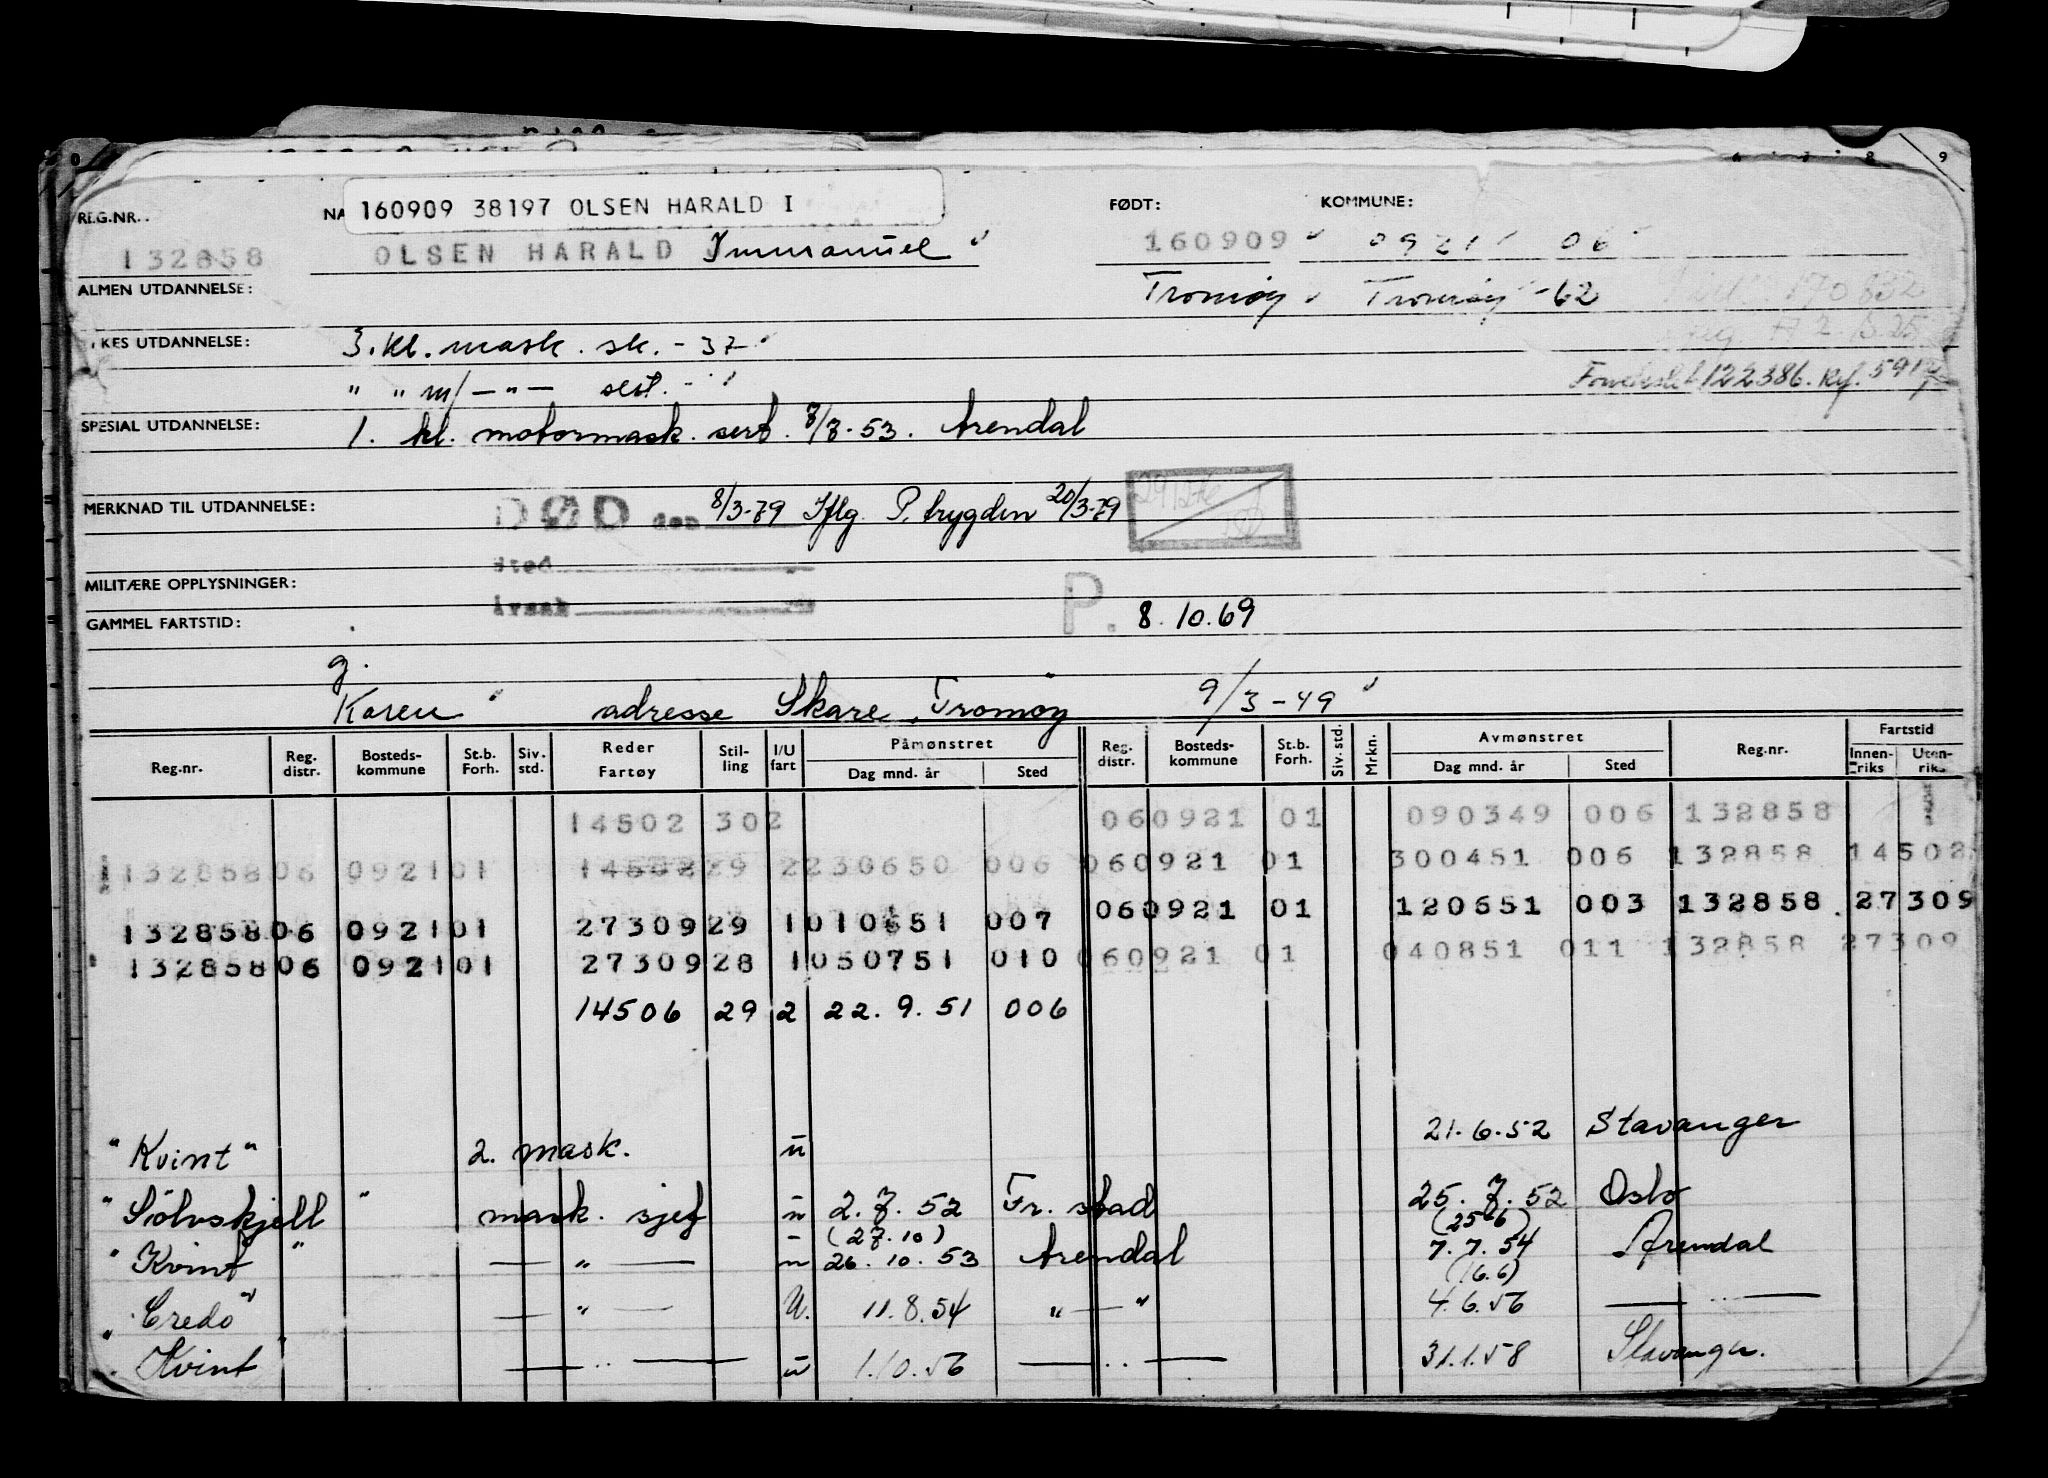 REG.NR. NA 160909 38197 OLSEN HARALD I FØDT: KOMMUNE:
132858 OLSEN HARALD Immanuel 160909 0921 06
ALMEN UTDANNELSE: Tromøy Tromøy -62
YRKES UTDANNELSE: 3. kl. mask. sk. - 37
" " m/ — " — sert. - " 122386. 
SPESIAL UTDANNELSE: 1. kl. motormask. sert. 7/7-53. Arendal
MERKNAD TIL UTDANNELSE: DØD den 8/3-79 Iflg. P. trygden 20/3-79
Sted
MILITÆRE OPPLYSNINGER:
Årsak
GAMMEL FARTSTID: P. 8.10.69
g.
Karen adresse Skare, Tromøy 9/3-49
Reg.nr. Reg. distr. Bosteds-kommune St.b. Forh. Siv. std. Reder Fartøy Stil-ling I/U fart Påmønstret Dag mnd. år Sted Reg. distr. Bosteds-kommune St.b. Forh. Siv. std. Mrkn. Avmønstret Dag mnd. år Sted Reg.nr. Fartstid Innen-riks Uten-riks
14502 302 060921 01 090349 006 132858
132858 06 0921 01 14502 29 2 230650 006 060921 01 300451 006 132858 14502
132858 06 0921 01 27309 29 1 010651 007 060921 01 120651 003 132858 27309
132858 06 0921 01 27309 28 1 050751 010 060921 01 040851 011 132858 27309
14506 29 2 22.9.51 006
"Kvint" 2. mask. u 21.6.52 Stavanger
"Sølvskjell" mask. sjef u 2.7.52 Fr.stad 25.7.52 Oslo
(27.10) (25.6)
"Kvint" — " — u 26.10.53 Arendal 7.7.54 Arendal
(16.6)
"Credo" — " — U. 11.8.54 " — " 4.6.56 — " —
"Kvint" — " — u 1.10.56 — " — 31.1.58 Stavanger.